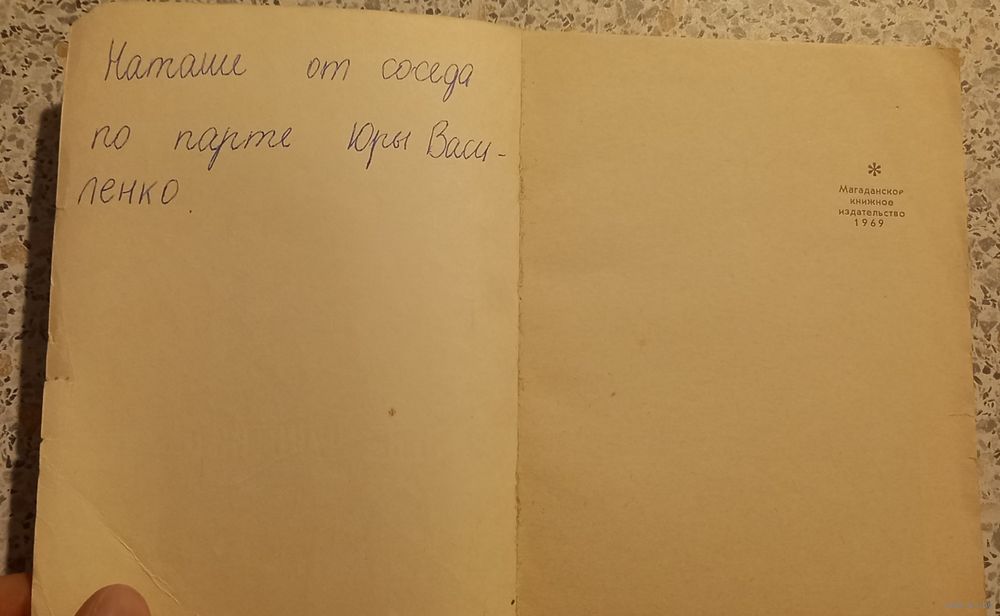 Наташе от соседа
по парте Юры Васи-
ленко.
*
Магаданское
книжное
издательство
1969